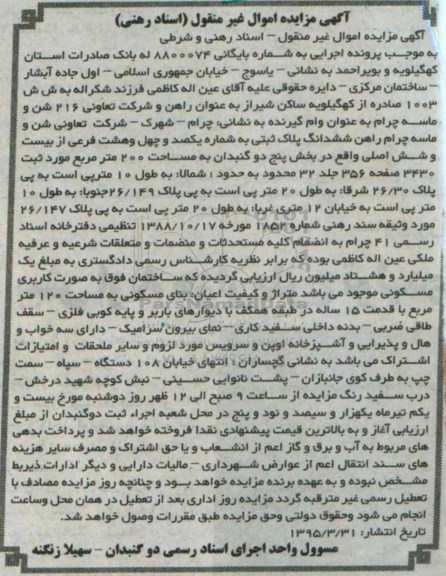 آگهی مزایده اموال غیر منقول (اسناد رهنی)
آگهی مزایده اموال غیر منقول - اسناد رهنی و شرطی
به موجب پرونده اجرایی به شماره بایگانی ۸۸۰۰۰۷۴ له بانک صادرات استان
کهگیلویه و بویراحمد به نشانی - یاسوج - خیابان جمهوری اسلامی - اول جاده آبشار
- ساختمان مرکزی - دایره حقوقی علیه آقای عین اله کاظمی فرزند شکراله به ش ش
۱۰۰۳ صادره از کهگیلویه ساکن شیراز به عنوان راهن و شرکت تعاونی ۲۱۶ شن و
ماسه چرام به عنوان وام گیرنده به نشانی: چرام - شهرک - شرکت تعاونی شن و
ماسه چرام راهن ششدانگ پلاک ثبتی به شماره یکصد و چهل وهشت فرعی از بیست
و شش اصلی واقع در بخش پنج دو گنبدان به مساحت ۲۰۰ متر مربع مورد ثبت
۳۴۳۰ صفحه ۳۵۶ جلد ۳۲ محدود به حدود : شمالا: به طول ۱۰ مترپی است به پی
پلاک ۲۶/۳۰ شرقا: به طول ۲۰ متر پی است به پی پلاک ۲۶/۱۴۹جنوبا: به طول ۱۰
متر پی است به خیابان ۱۲ متری غربا: به طول ۲۰ متر پی است به پی پلاک ۲۶/۱۴۷
مورد وثیقه سند رهنی شماره ۱۸۵۲۰ مورخه ۱۳۸۸/۱۰/۱۷ تنظیمی دفترخانه اسناد
رسمی ۴۱ چرام به انضمام کلیه مستحدثات و منضمات و متعلقات شرعیه و عرفیه
ملکی عین اله کاظمی بوده که برابر نظریه کارشناس رسمی دادگستری به مبلغ یک
میلیارد و هشتاد میلیون ریال ارزیابی گردیده که ساختمان فوق به صورت کاربری
مسکونی موجود می باشد متراژ و کیفیت اعیان: بنای مسکونی به مساحت ۱۲۰ متر
مربع با قدمت ۱۵ ساله در طبقه همکف با دیوارهای باربر و پایه کوبی فلزی - سقف
طاقی ضربی - بدنه داخلی سفید کاری - نمای بیرون سرامیک - دارای سه خواب و
هال و پذیرایی و آشپزخانه اوپن و سرویس مورد لزوم و سایر ملحقات و امتیازات
اشتراک می باشد به نشانی گچساران : انتهای خیابان ۱۰۸ دستگاه - سپاه - سمت
چپ به طرف کوی جانبازان - پشت نانوایی حسینی - نبش کوچه شهید درخش -
درب سفید رنگ مزایده از ساعت ۹ صبح الی ۱۲ ظهر روز دوشنبه مورخ بیست و
یکم تیرماه یکهزار و سیصد و نود و پنج در محل شعبه اجراء ثبت دوگنبدان از مبلغ
ارزیابی آغاز و به بالاترین قیمت پیشنهادی نقدا فروخته خواهد شد و پرداخت بدهی
های مربوط به آب و برق و گاز اعم از انشعاب و یا حق اشتراک و مصرف سایر هزینه
های سند انتقال اعم از عوارض شهرداری - مالیات دارایی و دیگر ادارات ذیربط
مشخص نبوده و به عهده برنده مزایده خواهد بود و چنانچه روز مزایده مصادف با
تعطیل رسمی غیر مترقبه گردد مزایده روز اداری بعد از تعطیل در همان محل وساعت
انجام می شود وحقوق دولتی وحق مزایده طبق مقررات وصول خواهد شد.
تاریخ انتشار: ۱۳۹۵/۳/۳۱
مسوول واحد اجرای اسناد رسمی دو گنبدان - سهیلا زنگنه